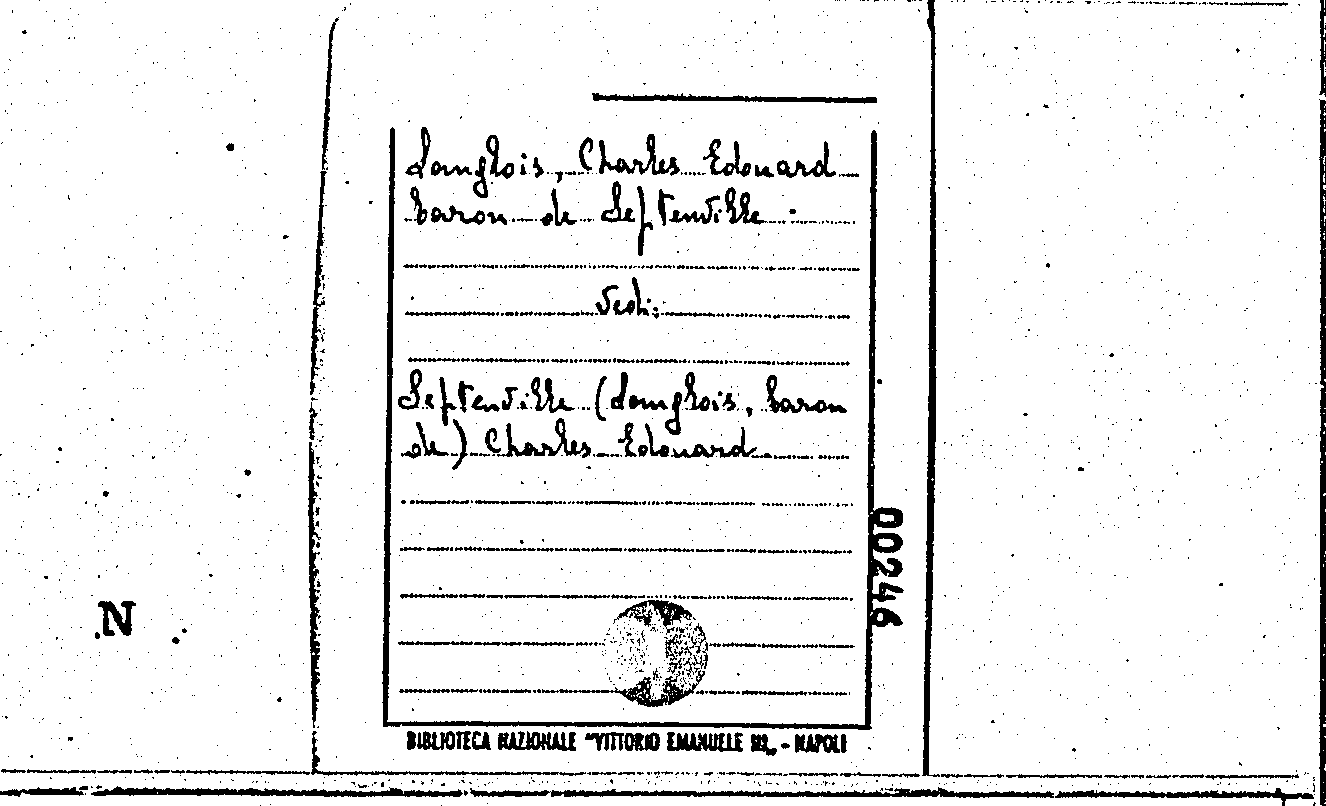 Langlois, Charles Edouard
baron de Septenville.
vedi:
Septenville (Langlois, baron
de) Charles Edouard.
00246
N
BIBLIOTECA NAZIONALE "VITTORIO EMANUELE III„ - NAPOLI